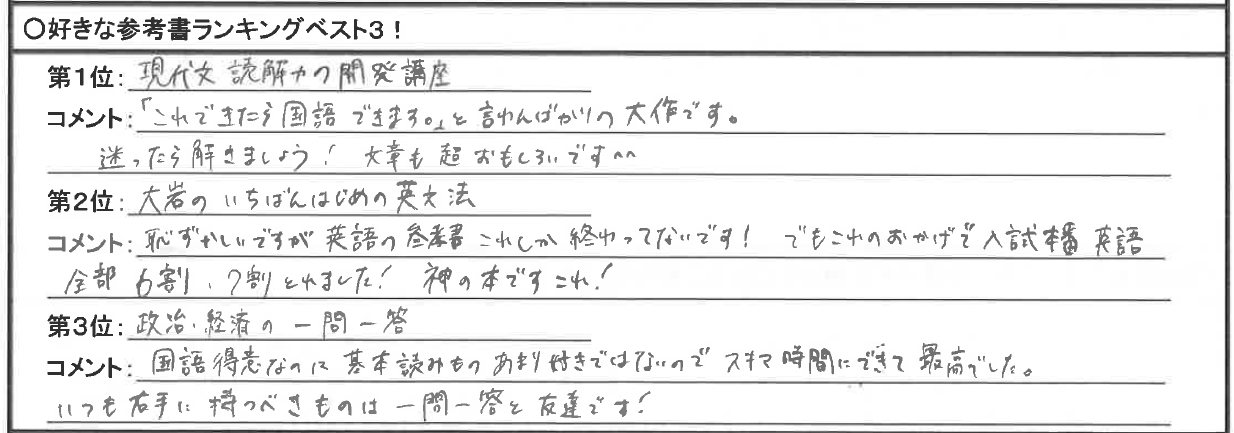 〇好きな参考書ランキングベスト3！
第1位: 現代文 読解力の開発講座
コメント:「これできたら国語できます。」と言わんばかりの大作です。
迷ったら解きましょう！ 文章も超おもしろいです^^
第2位: 大岩のいちばんはじめの英文法
コメント: 恥ずかしいですが英語の参考書これしか終わってないです！ でもこれのおかげで入試本番英語
全部6割、7割とれました！ 神の本ですこれ！
第3位: 政治・経済の一問一答
コメント: 国語得意なのに基本読みものあまり好きではないのでスキマ時間にできて最高でした。
いつも右手に持つべきものは一問一答と友達です！